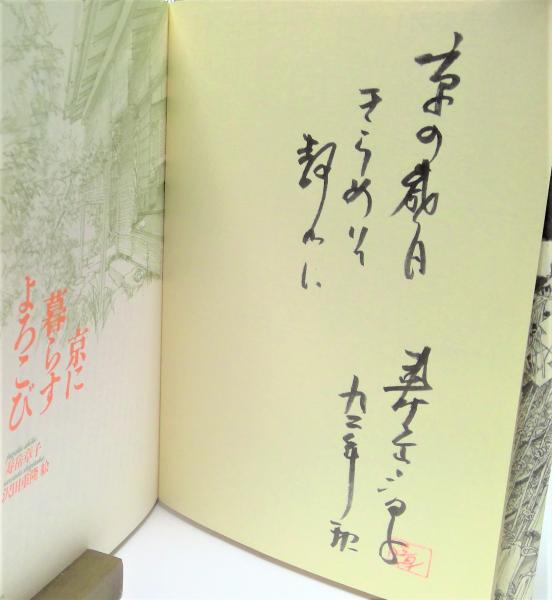 京の歳月
きらめいて
静かに
寿岳章子
九二年 秋
京に
暮らす
よろこび
寿岳章子
沢田重隆 絵